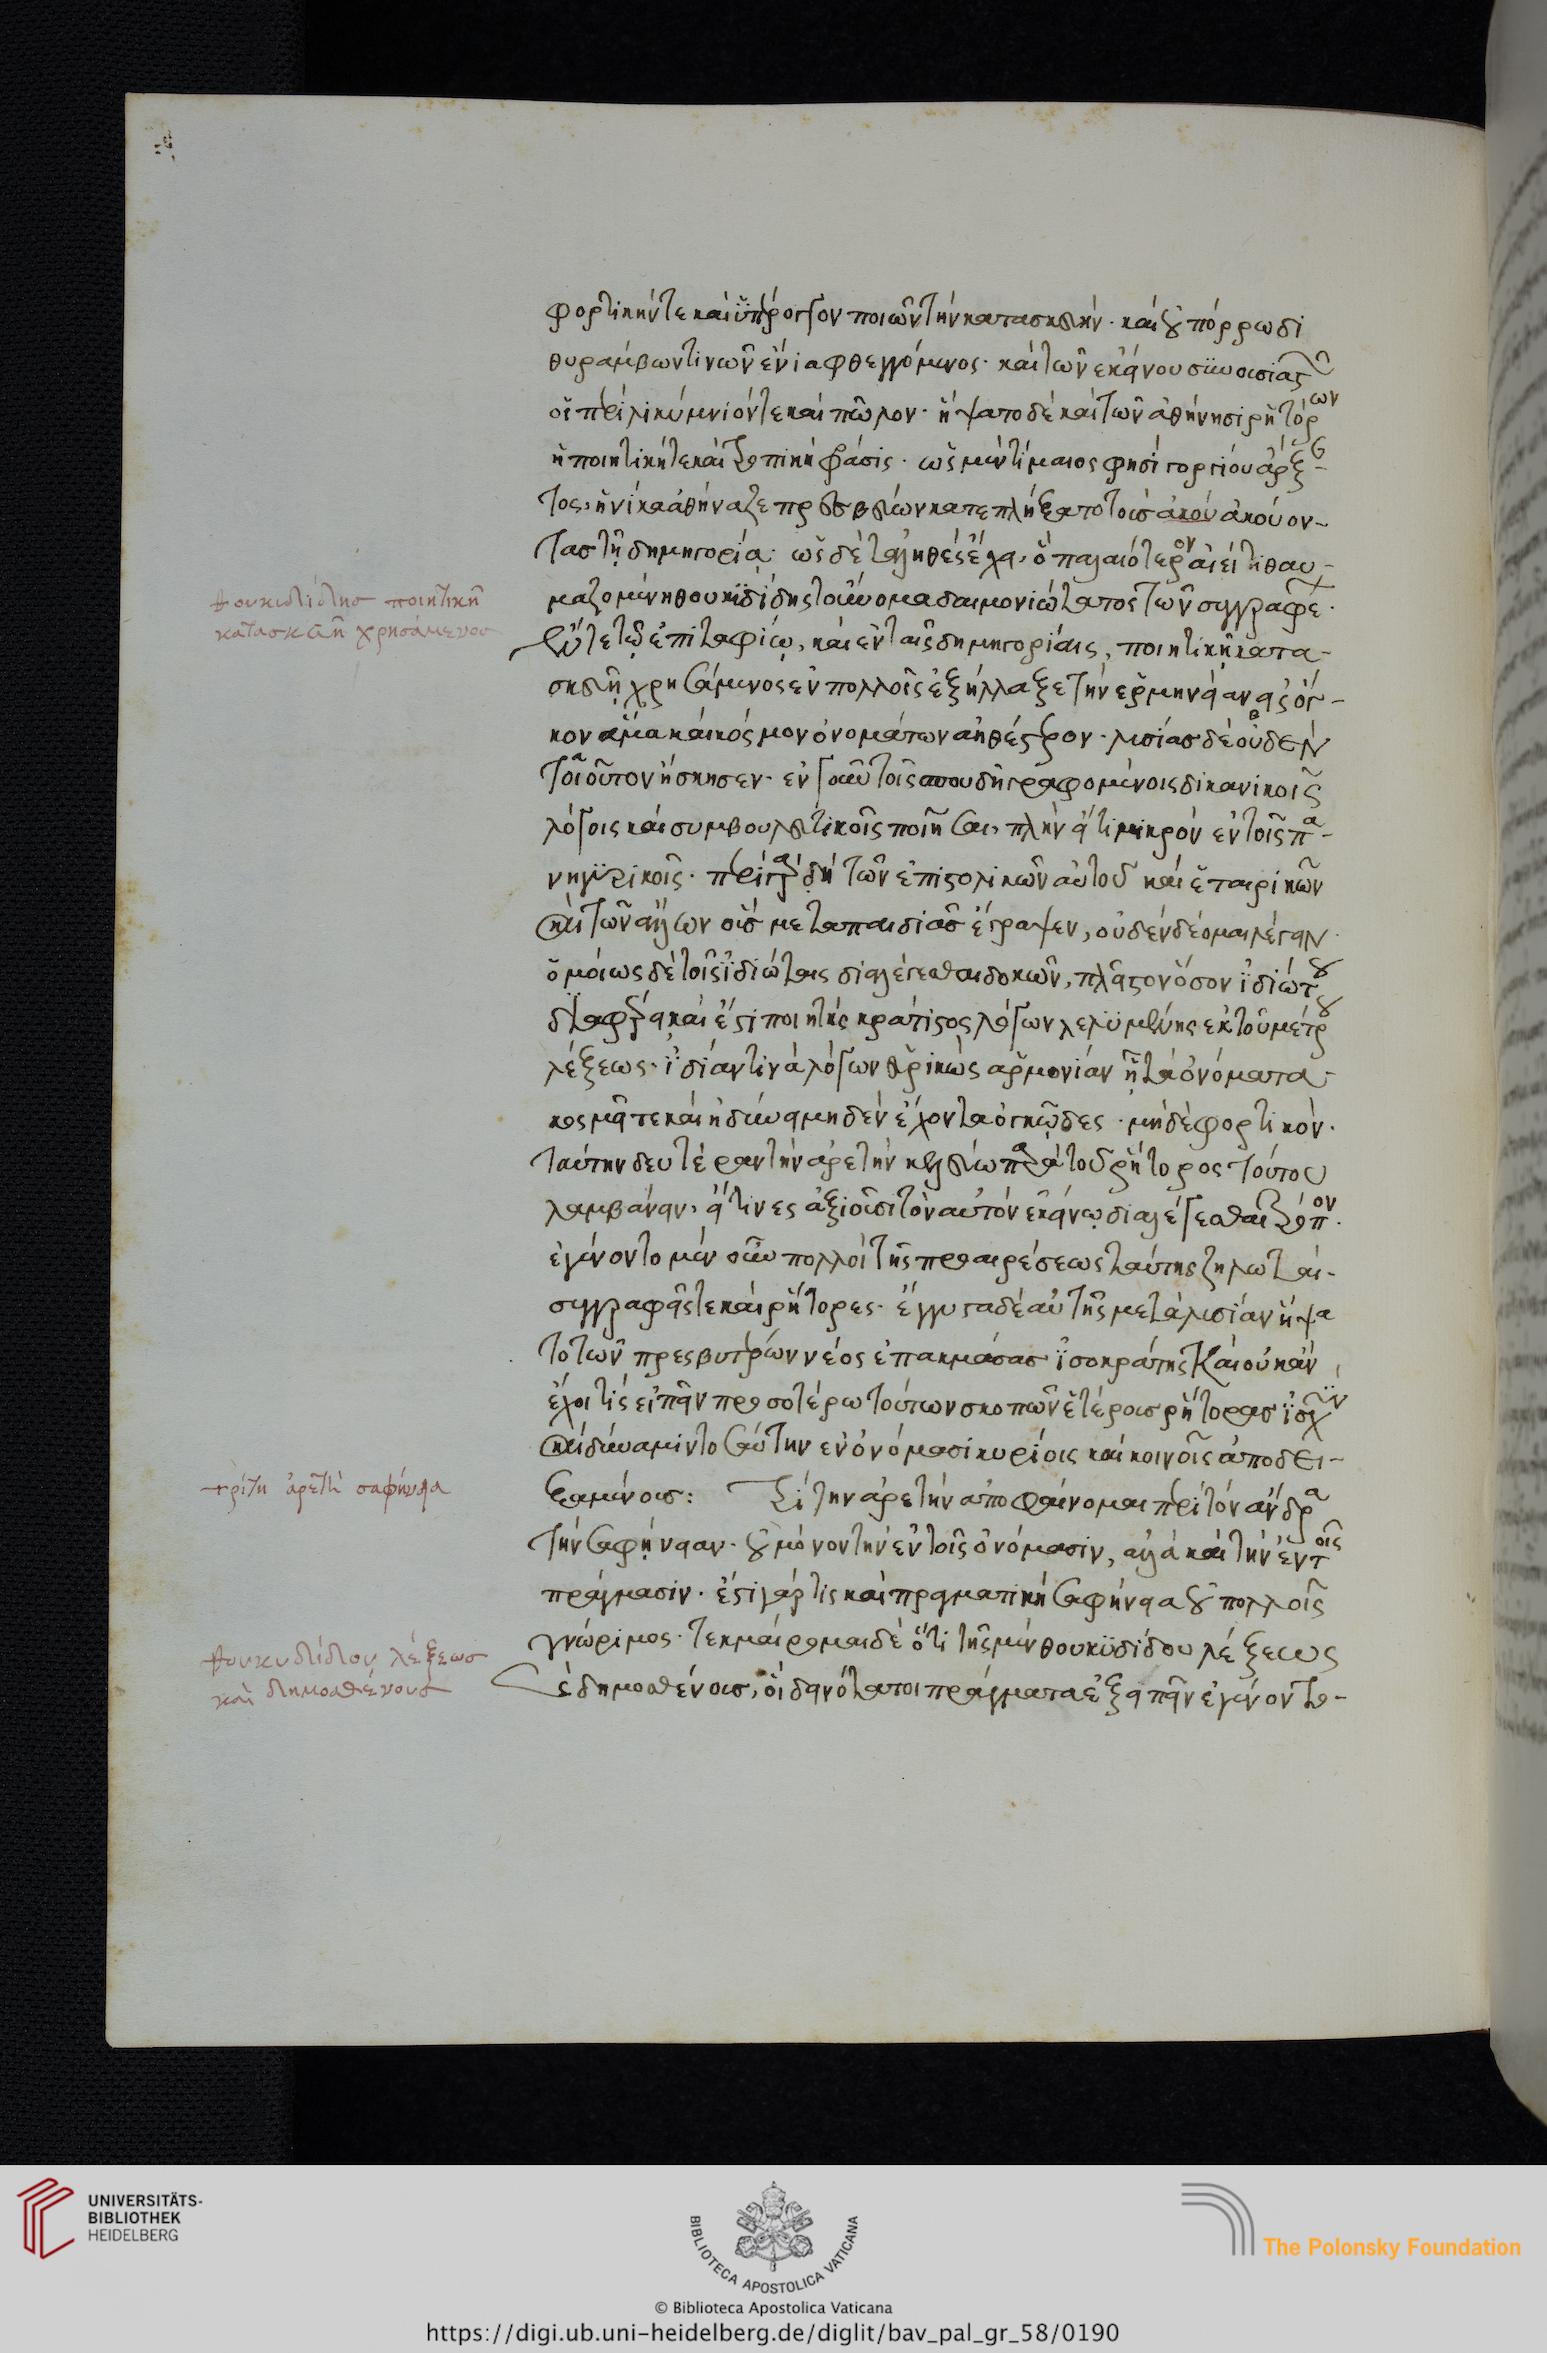 φορτικήν τε καὶ ὑπέρογκον ποιῶν τὴν κατασκευήν· καὶ οὐ πόρρω δι
θυράμβων τινῶν ἔνια φθεγγόμενος· καὶ τῶν ἐκείνου συνουσιαστῶν
οἱ περὶ λικύμνιόν τε καὶ πῶλον· ἥψατο δὲ καὶ τῶν ἀθήνησι ῥητόρων
ἡ ποιητική τε καὶ τροπικὴ φράσις· ὡς μὲν τίμαιος φησί γοργίου ἄρξαν-
τος, ἡνίκα ἀθήναζε πρεσβεύων κατεπλήξατο τοὺς ἀκού ἀκούον-
τας τῇ δημηγορίᾳ· ὡς δὲ τἀληθὲς ἔχει, ὃ παλαιότερον αἰεί τι θαυ-
θουκυδίδης ποιητικῇ
κατασκευῇ χρησάμενος
μαζομένη θουκυδίδης τοὔνομα δαιμονιώτατος τῶν συγγραφέ·
ἔν τε τῷ ἐπιταφίῳ, καὶ ἐν ταῖς δημηγορίαις, ποιητικῇ κατα-
σκευῇ χρησάμενος ἐν πολλοῖς ἐξήλλαξε τὴν ἑρμηνείαν εἰς ὄγ-
κον ἅμα καὶ κόσμον ὀνομάτων ἀηθέστερον· λυσίας δὲ οὐδὲν
τοιοῦτον ἤσκησεν· ἐν γοῦν τοῖς σπουδῇ γραφομένοις δικανικοῖς
λόγοις καὶ συμβουλευτικοῖς ποιῆσαι, πλὴν εἴ τι μικρὸν ἐν τοῖς πα-
νηγυρικοῖς· περὶ γὰρ δὴ τῶν ἐπιστολικῶν αὐτοῦ καὶ ἑταιρικῶν
καὶ τῶν ἄλλων οὓς μετὰ παιδιᾶς ἔγραψεν, οὐδὲν δέομαι λέγειν·
ὁμοίως δὲ τοῖς ἰδιώταις διαλέγεσθαι δοκῶν, πλεῖστον ὅσον ἰδιώτου
διαφέρει καὶ ἔστι ποιητὴς κράτιστος λόγων λελυμένης ἐκ τοῦ μέτρου
λέξεως· ἰδίαν τινὰ λόγων εὑρηκὼς ἁρμονίαν ᾗ τὰ ὀνόματα
κοσμεῖ τε καὶ ἡδύνει μηδὲν ἔχοντα ὀγκῶδες· μηδὲ φορτικόν·
ταύτην δευτέραν τὴν ἀρετὴν κελεύω παρὰ τοῦ ῥήτορος τούτου
λαμβάνειν, εἴ τινες ἀξιοῦσι τὸν αὐτὸν ἐκείνῳ διαλέγεσθαι τρόπον·
ἐγένοντο μὲν οὖν πολλοὶ τῆς προαιρέσεως ταύτης ζηλωταί·
συγγραφεῖς τε καὶ ῥήτορες· ἔγγυτα δὲ αὐτῆς μετὰ λυσίαν ἥψα
το τῶν πρεσβυτέρων νέος ἐπακμάσας ἰσοκράτης καὶ οὐκ ἂν
ἔχοι τις εἰπεῖν προσοτέρω τούτων σκοπῶν ἑτέρους ῥήτορας ἰσχὺν
καὶ δύναμιν τοσαύτην ἐν ὀνόμασι κυρίοις καὶ κοινοῖς ἀποδει-
τρίτη ἀρετὴ σαφήνεια
ξαμένους: Τρίτην ἀρετὴν ἀποφαίνομαι περὶ τὸν ἄνδρα
τὴν σαφήνειαν· οὐ μόνον τὴν ἐν τοῖς ὀνόμασιν, ἀλλὰ καὶ τὴν ἐν τοῖς
πράγμασιν· ἔστι γάρ τις καὶ πραγματικὴ σαφήνεια οὐ πολλοῖς
γνώριμος· τεκμαίρομαι δὲ ὅτι τῆς μὲν θουκυδίδου λέξεως
θουκυδίδου λέξεως
καὶ δημοσθένους
καὶ δημοσθένους, οἳ δεινότατοι πράγματα ἐξειπεῖν ἐγένοντο-
UNIVERSITÄTS-
BIBLIOTHEK
HEIDELBERG
BIBLIOTECA APOSTOLICA VATICANA
The Polonsky Foundation
© Biblioteca Apostolica Vaticana
https://digi.ub.uni-heidelberg.de/diglit/bav_pal_gr_58/0190